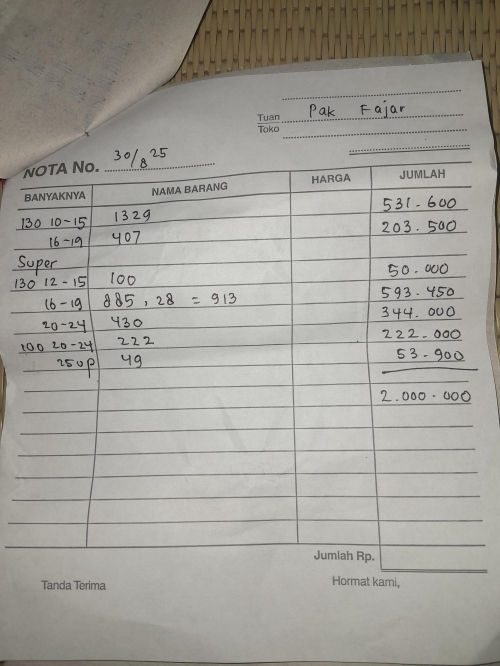 Tuan Pak Fajar
Toko
NOTA No. 30/8 25
BANYAKNYA NAMA BARANG HARGA JUMLAH
130 10-15 1329 531.600
16-19 407 203.500
Super
130 12-15 100 50.000
16-19 885, 28 = 913 593.450
20-24 430 344.000
100 20-24 222 222.000
25 up 49 53.900
2.000.000
Jumlah Rp.
Tanda Terima Hormat kami,